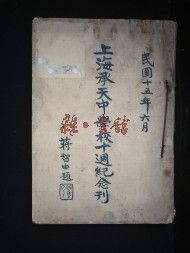 民國十五年六月
上海承天中學校十週紀念刊
蔣智由題